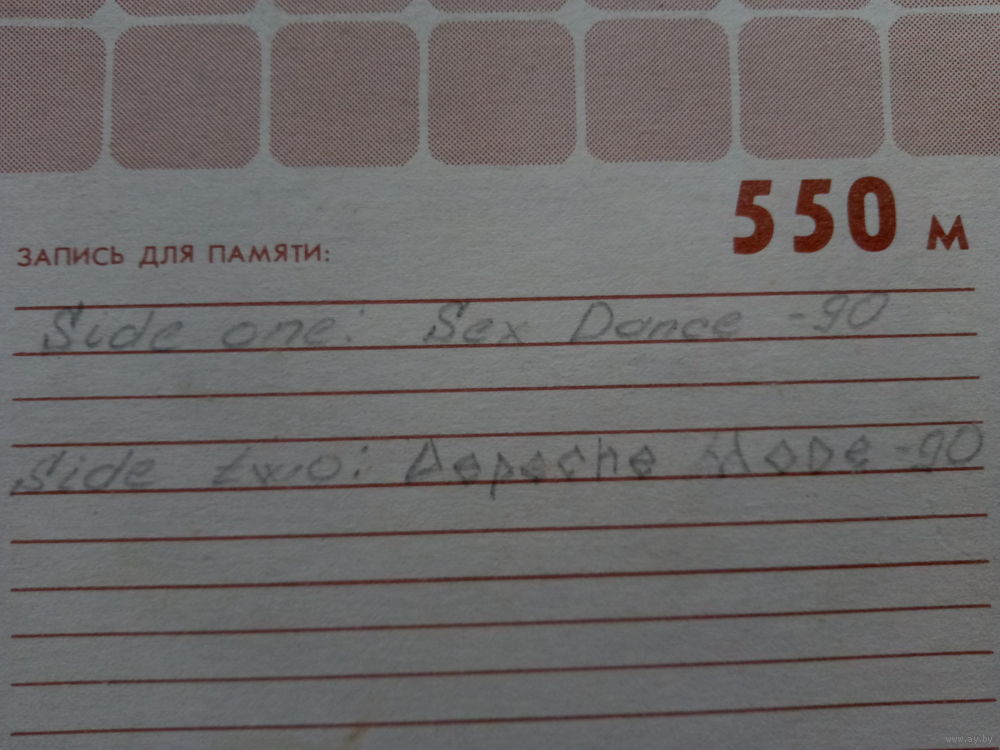 550 м
ЗАПИСЬ ДЛЯ ПАМЯТИ:
Side one: Sex Dance -90
Side two: Depeche Mode -90
www.ay.by